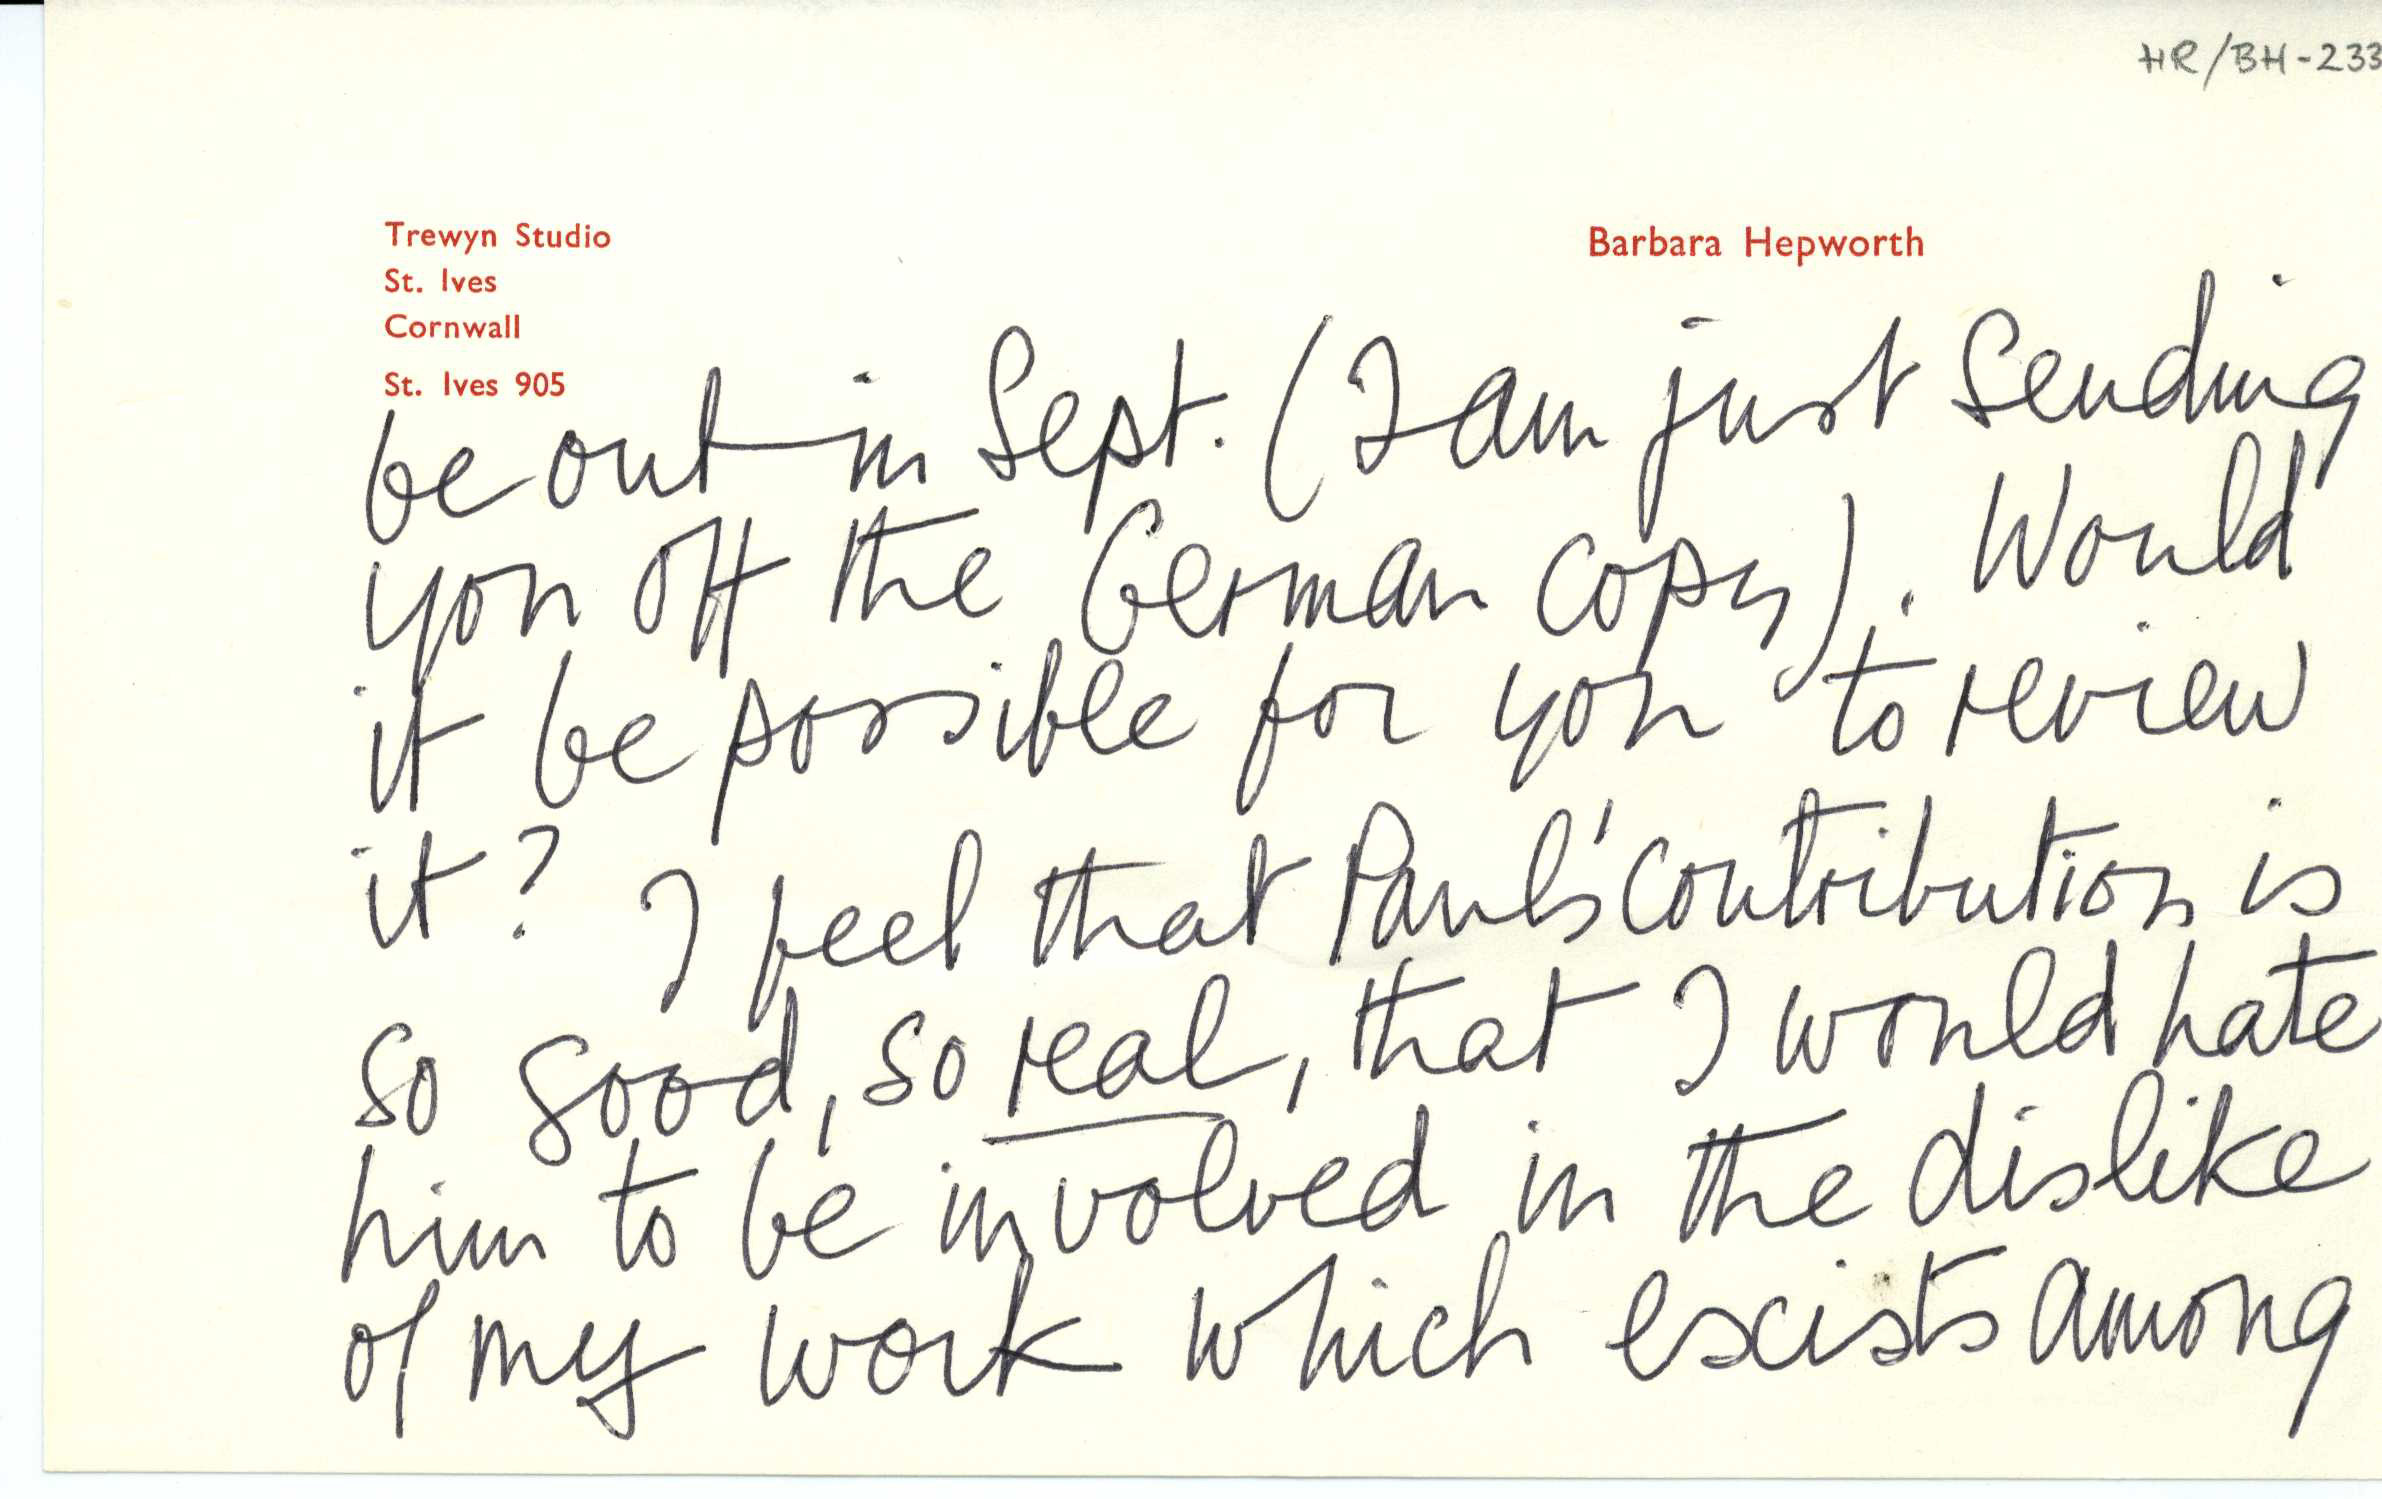 HR/BH-233
Trewyn Studio
St. Ives
Cornwall
St. Ives 905
Barbara Hepworth
be out in Sept. (I am just sending
you off the German copy). Would
it be possible for you to review
it? I feel that Paul's' contribution is
so good, so real, that I would hate
him to be involved in the dislike
of my work which excists among